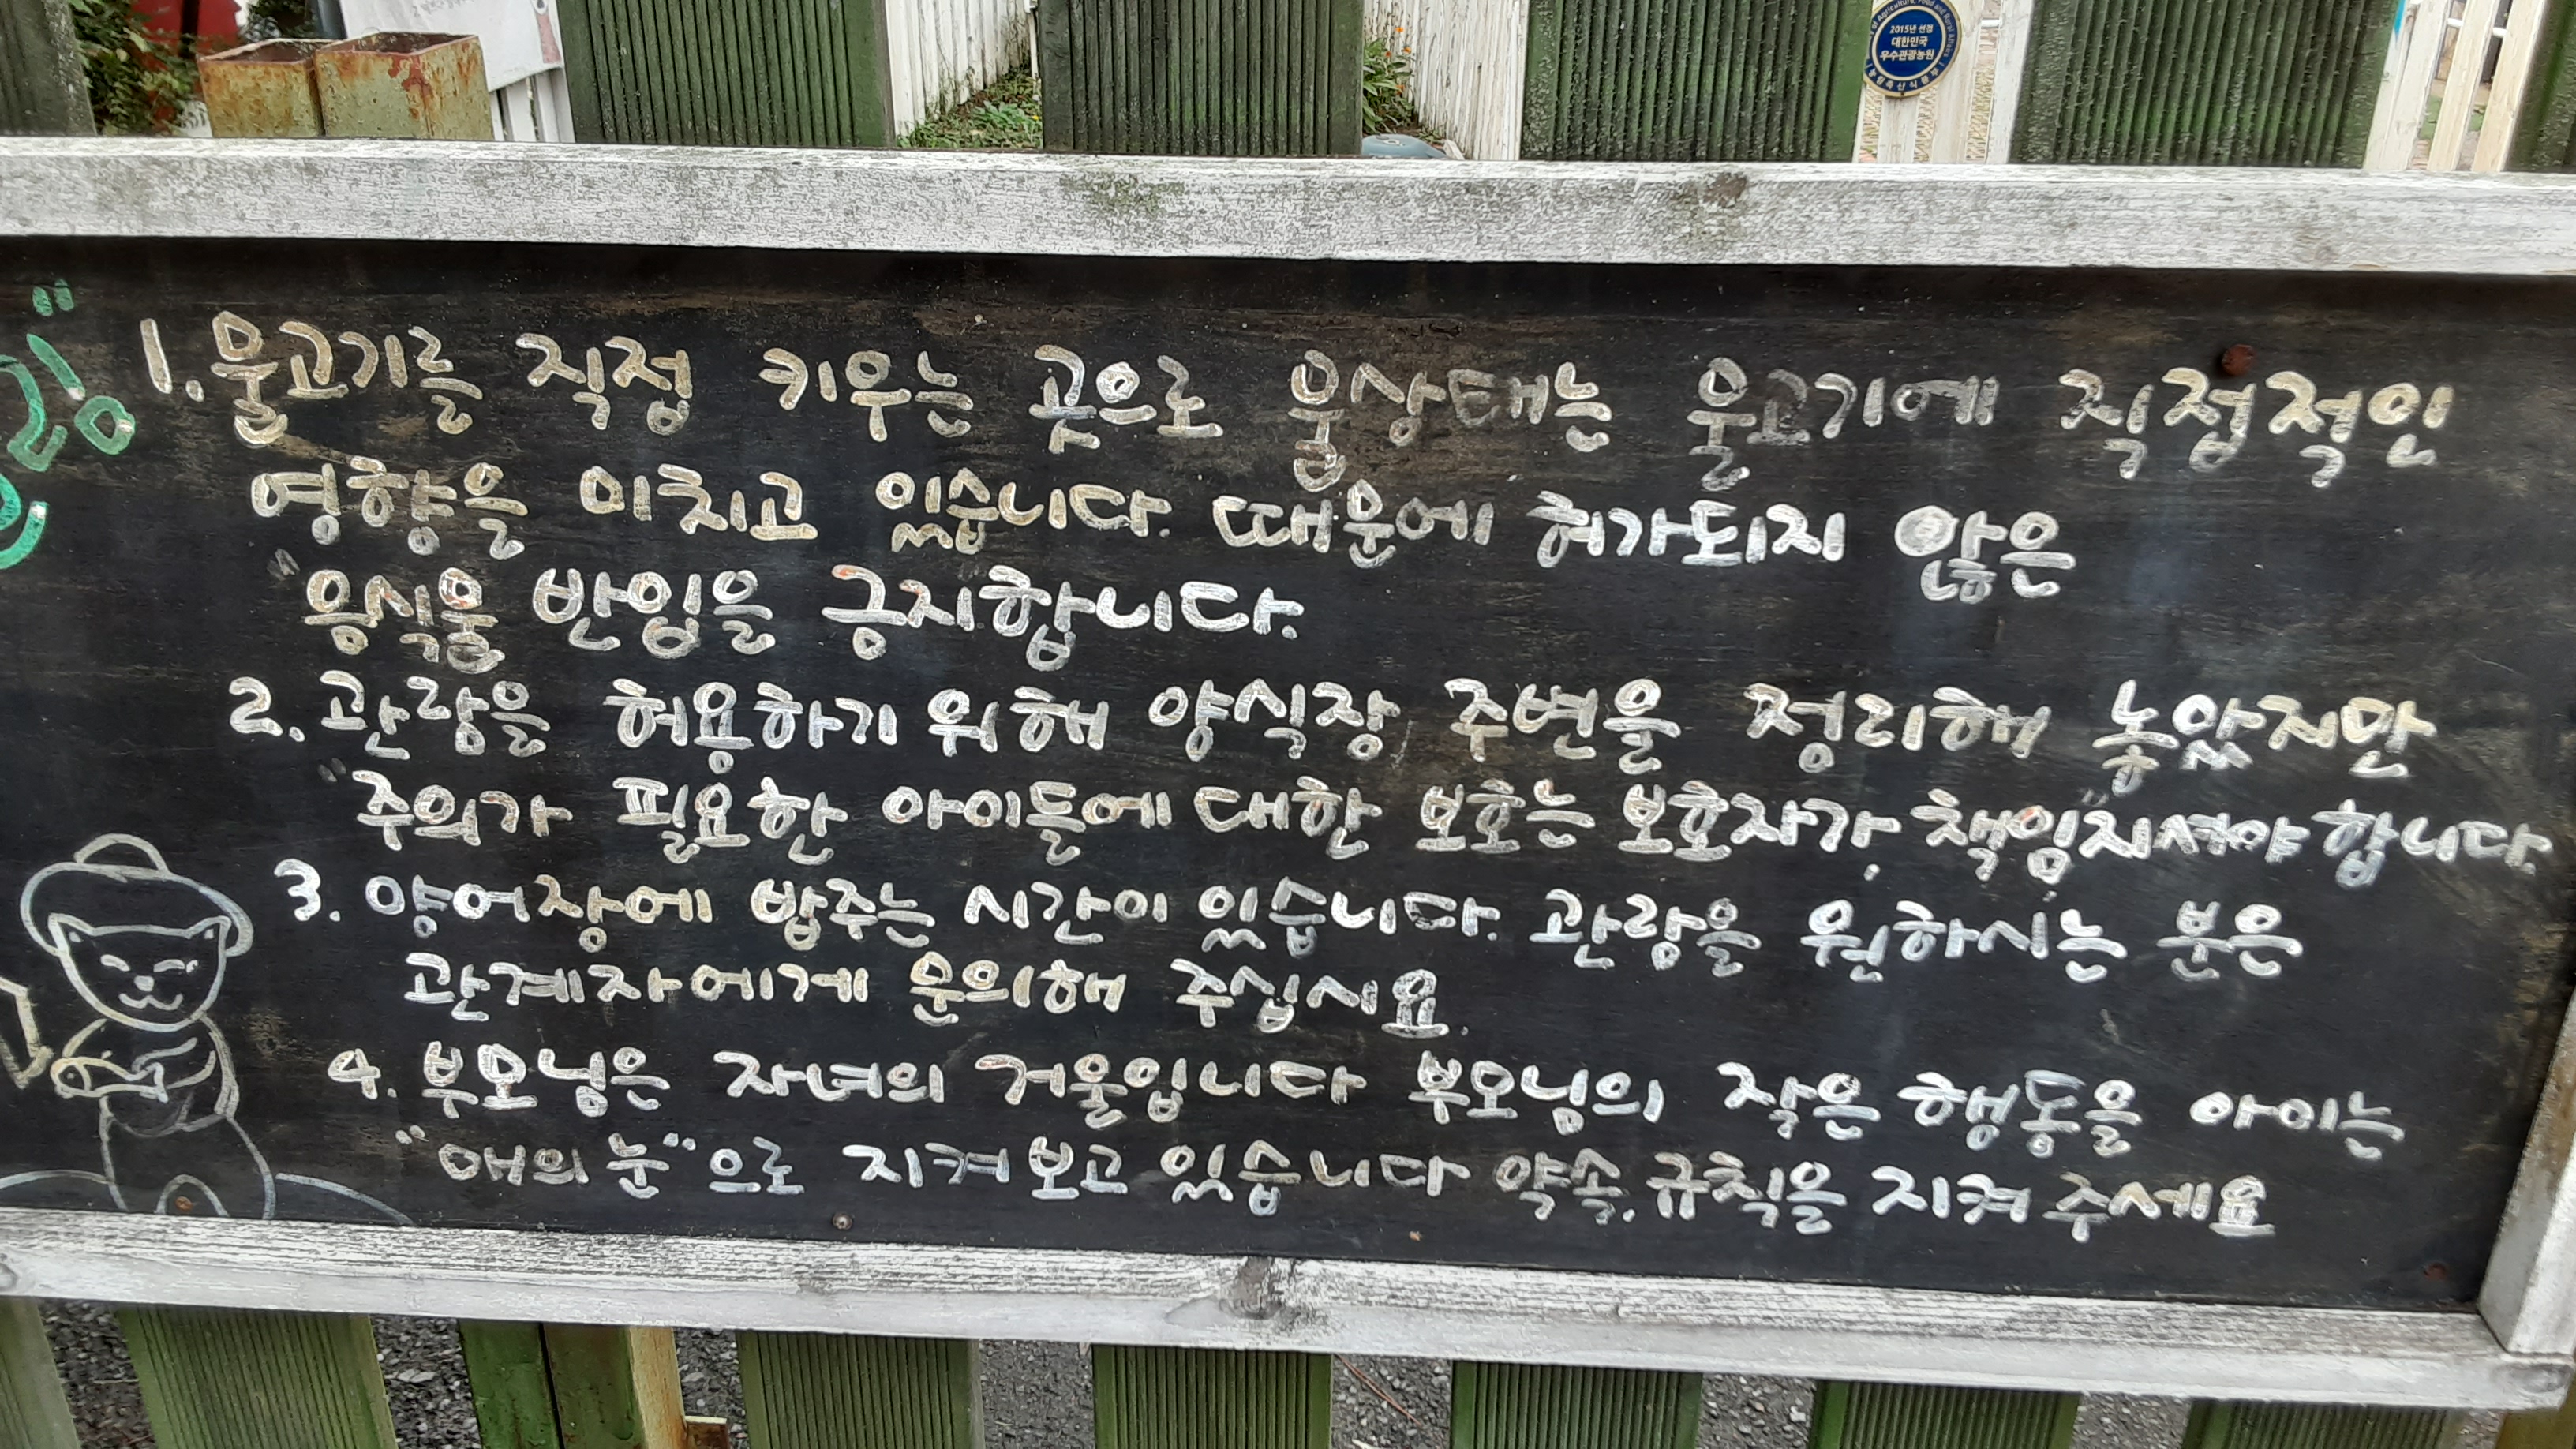 2015년 선정
대한민국
우수관광농원
농림축산식품부
1. 물고기를 직접 키우는 곳으로 물상태는 물고기에 직접적인
영향을 미치고 있습니다. 때문에 허가되지 않은
"음식물 반입을 금지합니다.
2. 관람을 허용하기 위해 양식장 주변을 정리해 놓았지만
"주의가 필요한 아이들에 대한 보호는 보호자가 책임"지셔야 합니다.
3. 양어장에 밥주는 시간이 있습니다. 관람을 원하시는 분은
관계자에게 문의해 주십시요.
4. 부모님은 자녀의 거울입니다 부모님의 작은 행동을 아이는
"애의 눈"으로 지켜보고 있습니다 약속, 규칙을 지켜 주세요